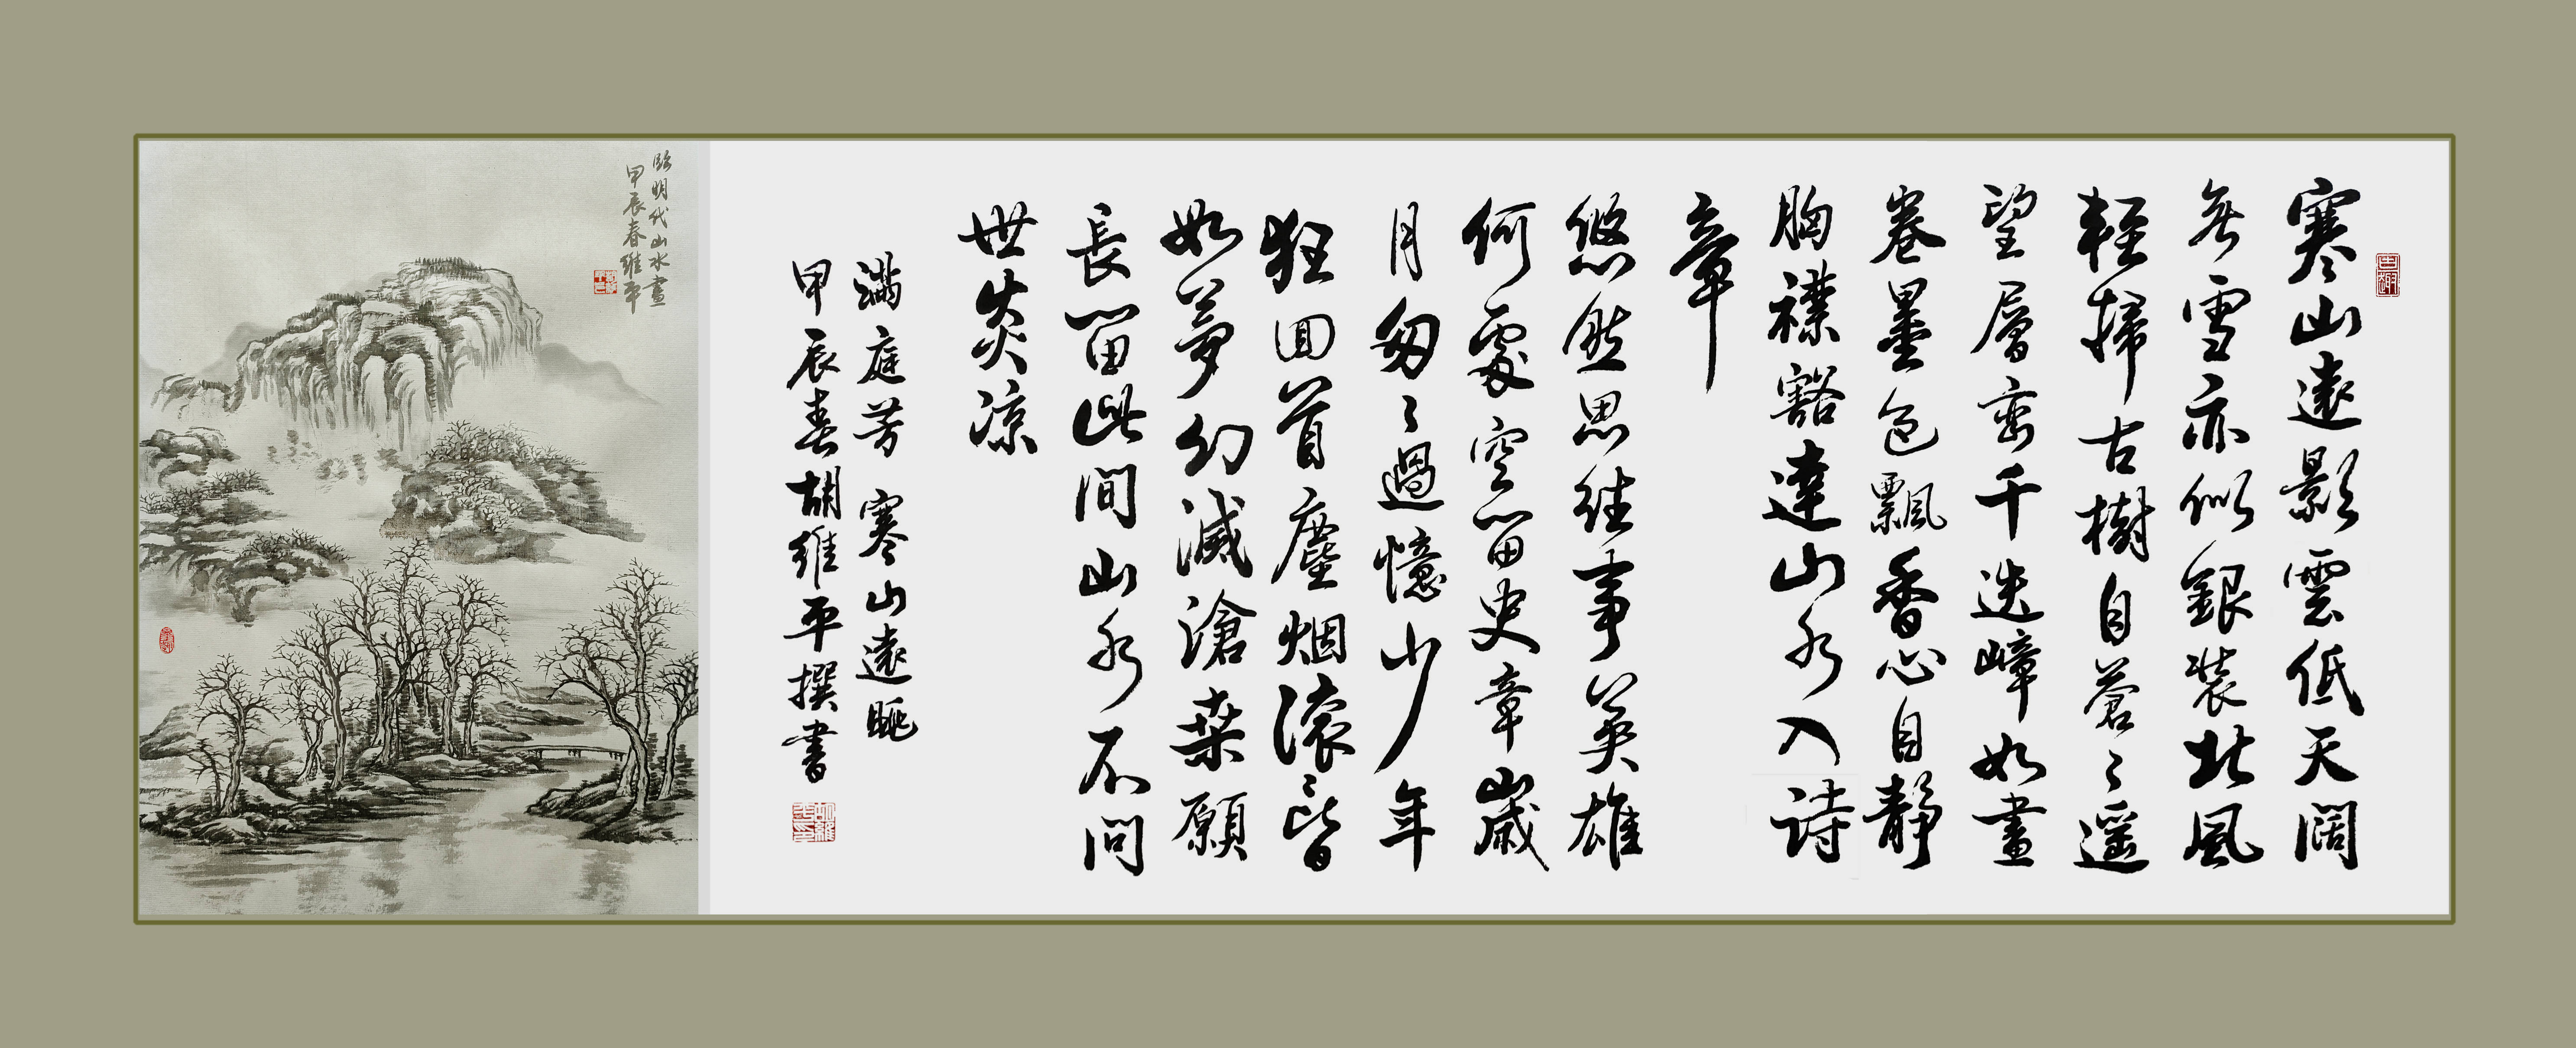 寒山遠影雲低天闊
無雪亦似銀裝北風
輕掃古樹自蒼〻遥
望層巒千迭嶂如畫
卷墨色飄香心自靜
胸襟豁達山水入詩
章
悠然思往事英雄
何處空留史章歲
月匆〻過憶少年
狂回首塵烟滚〻皆
如夢幻滅滄桑願
長留此間山水不問
世炎凉
滿庭芳 寒山遠眺
甲辰春胡維平撰書
臨明代山水畫
甲辰春維平